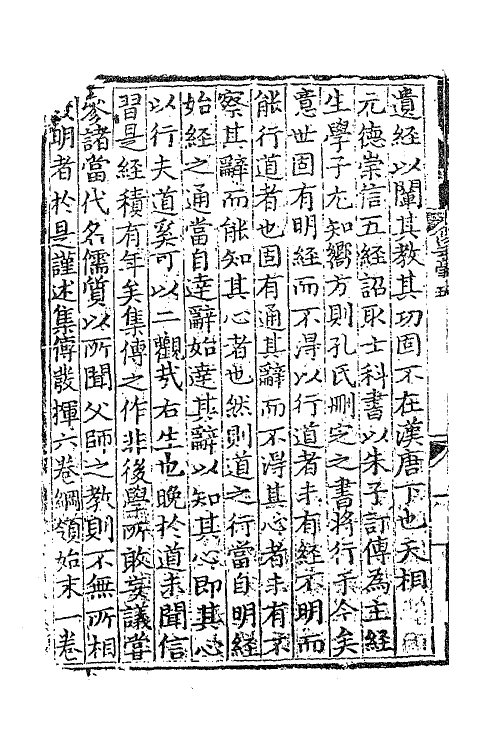 遺經以闡其教其功固不在漢唐下也天相
元德崇信五經詔取士科書以朱子訂傳為主經
生學子尢知嚮方則孔氏刪定之書將行乎今矣
意世固有明經而不得以行道者未有經不明而
能行道者也固有通其辭而不得其心者未有不
察其辭而能知其心者也然則道之行當自明經
始經之通當自達辭始達其辭以知其心即其心
以行夫道奚可以二觀㢤右生也晚於道未聞信
習是經積有年矣集傳之作非後學所敢妄議嘗
參諸當代名儒質以所聞父師之教則不無所相
明者於是謹述集傳發揮六卷綱領始末一卷